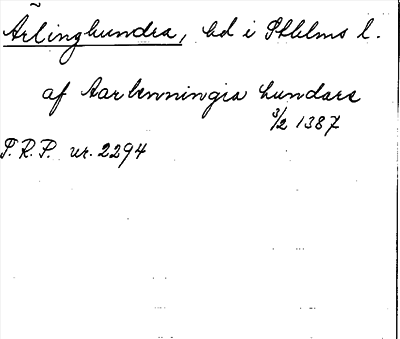 Ärlinghundra, hd i Sthlms l.
af Aarlenningia hundare
3/2 1387
P.R.P. nr. 2294